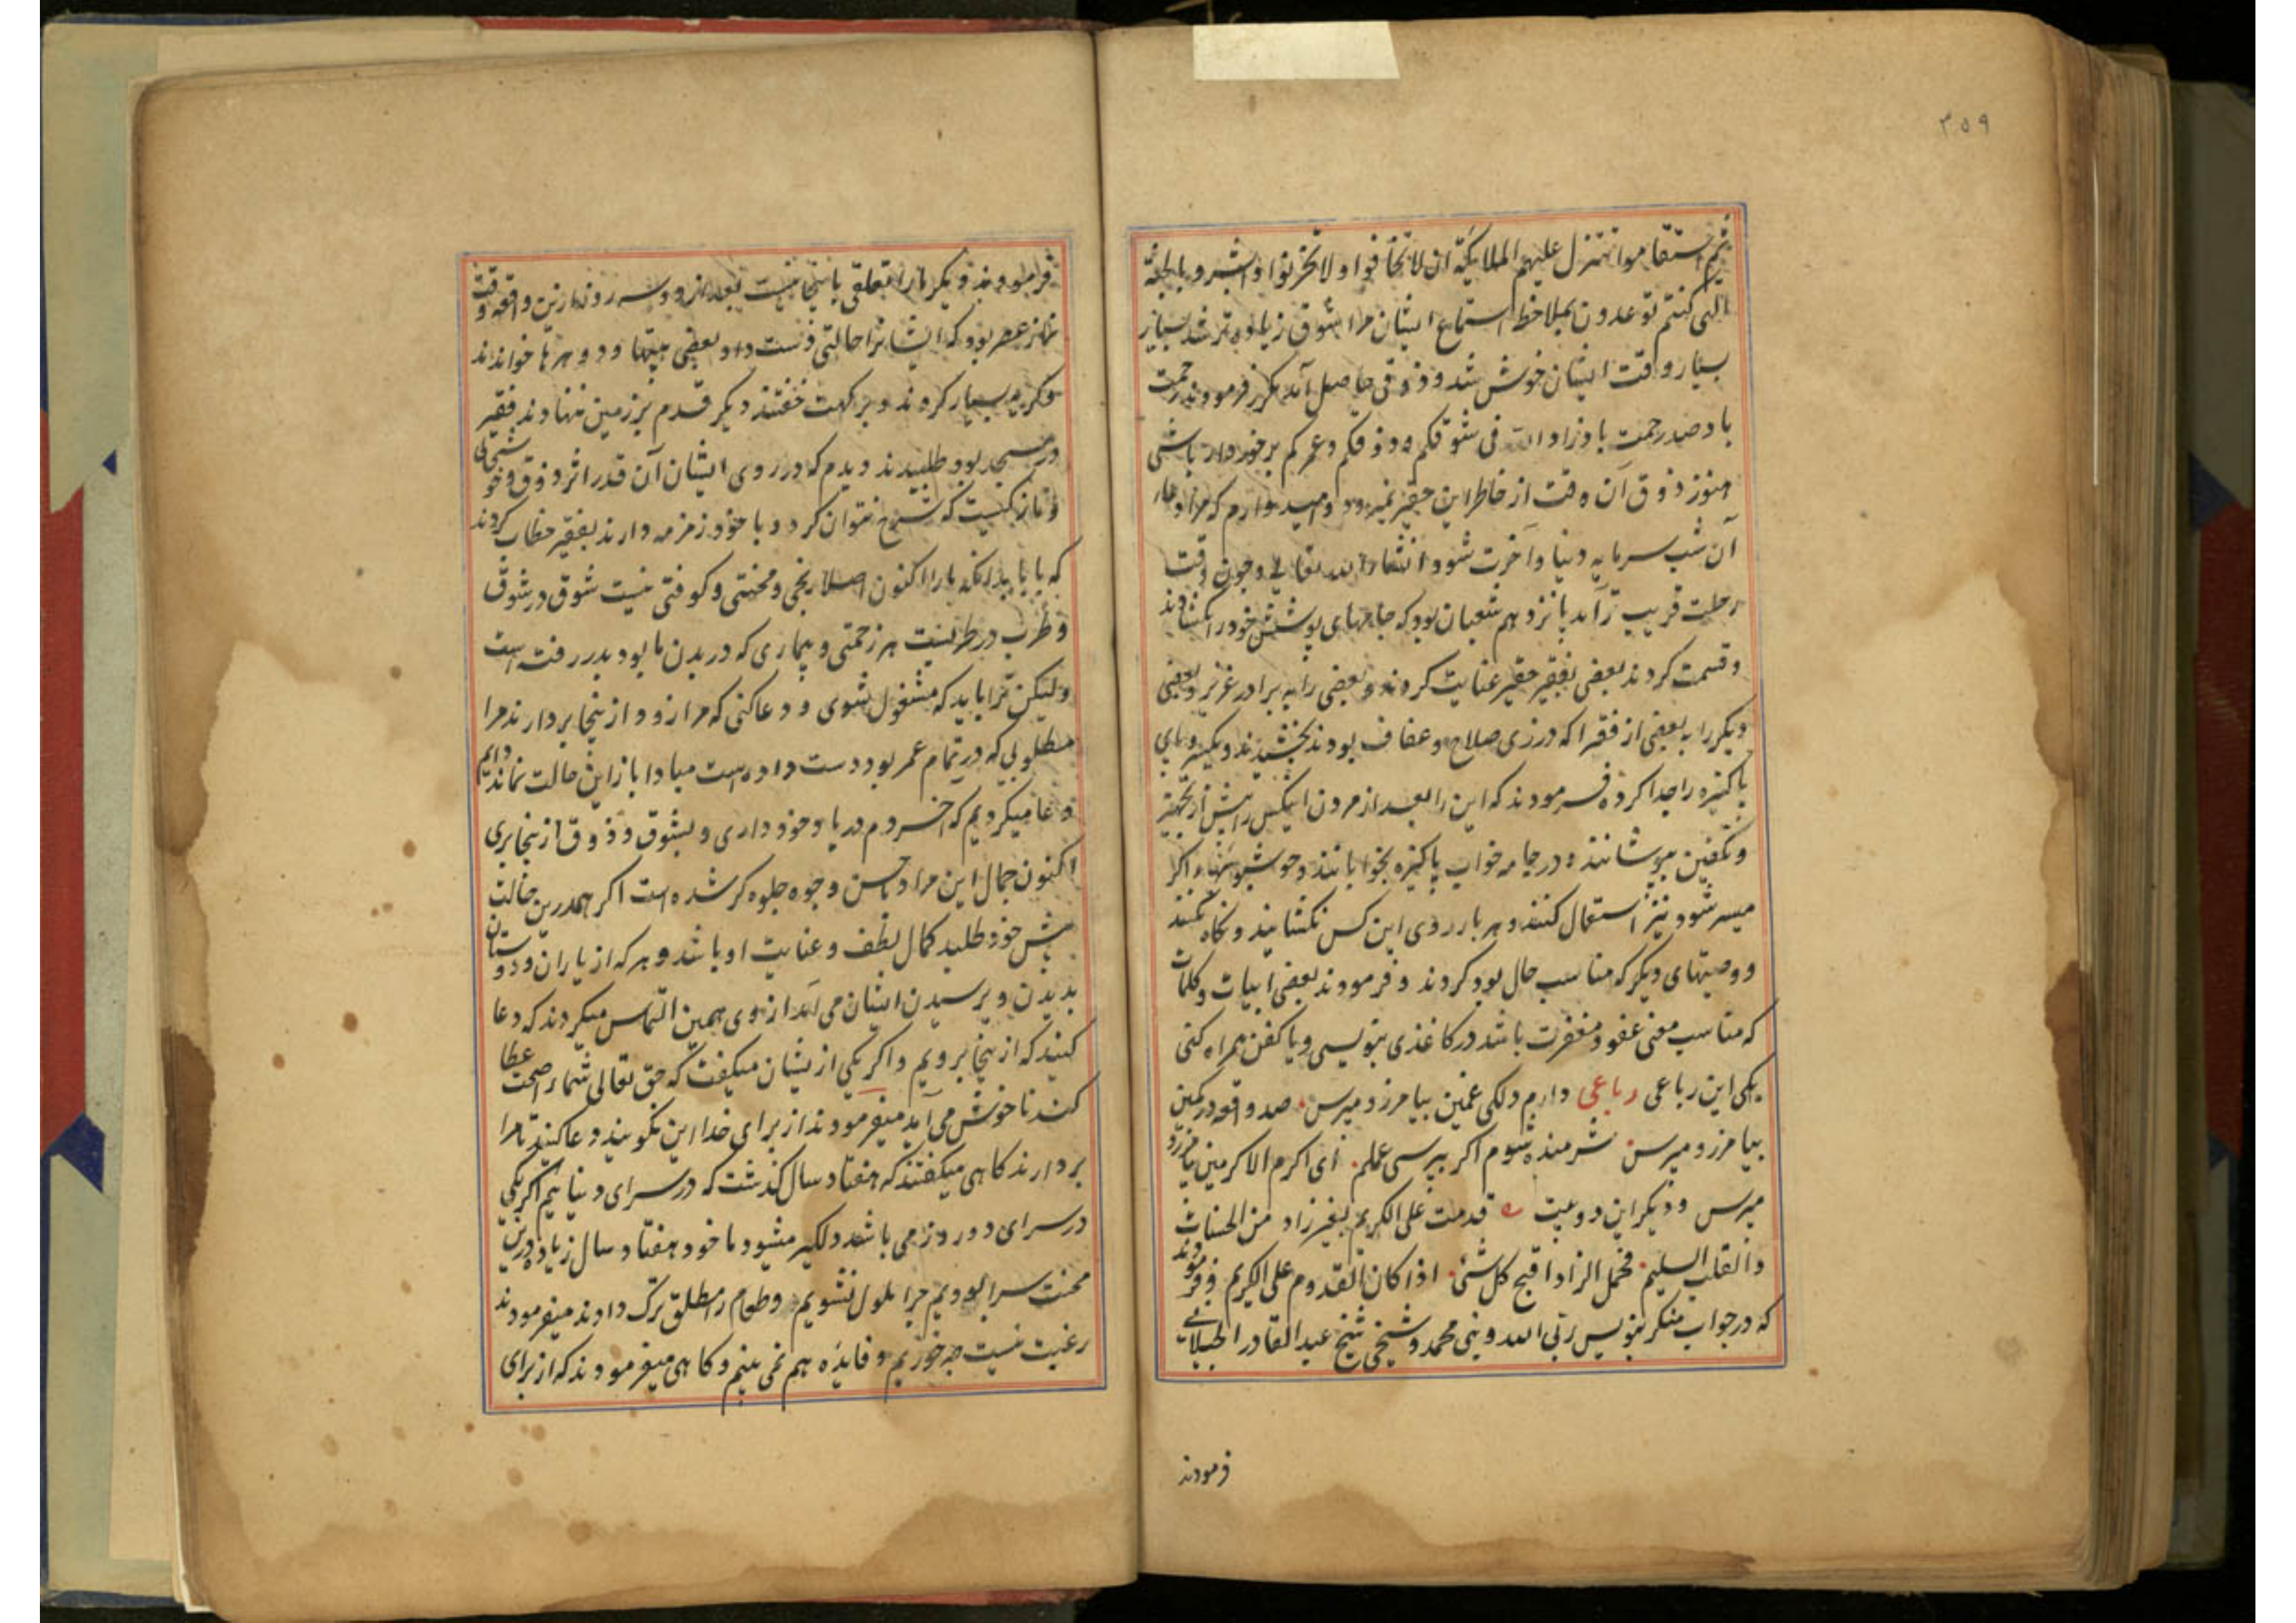 ۳۵۹
ثم استقاموا تتنزل علیهم الملائکة ان لا تخافوا ولا تحزنوا وابشروا بالجنة
التی کنتم توعدون بملاحظ استماع ایشان مرا شوق زیاده تر شد بسیار
بسیار وقت ایشان خوش شد و ذوقی حاصل آمد مکرر فرمودند رحمت
باد صد رحمت باد زاد الله فی شوقکم و ذوقکم و عمرکم برخوردار باشی
هنوز ذوق آن وقت از خاطر این حقیر نمیرود و امیدوارم که مرا دعاء
آن شب سرمایه دنیا و آخرت شود انشاء الله تعالی و چون وقت
رحلت قریب تر آمد پانزدهم شعبان بود که جامهای پوشش خود را کشادند
و قسمت کردند بعضی بفقیر حقیر عنایت کردند و بعضی را به برادر عزیز و بعضی
دیگر را به بعضی از فقرا که در زی صلاح و عفاف بودند بخشیدند و یکسر و پای
پاکیزه را جدا کرده فرمودند که این را بعد از مردن اینکس پیش از تجهیز
و تکفین بپوشانند و در جامه خواب پاکیزه بخوابانند و خوشبوئیها اگر
میسر شود نیز استعمال کنند و هر بار روی این کس نکشایند و نگاه نکنند
و وصیتهای دیگر که مناسب حال بود کردند و فرمودند بعضی ابیات و کلمات
که مناسب معنی عفو و مغفرت باشد در کاغذی بنویسی و با کفن همراه کنی
یکی این رباعی رباعی دارم دلکی غمین بیامرز و مپرس صد واقعه در کمین
بیامرز و مپرس شرمنده شوم اگر بپرسی عملم ای اکرم الاکرمین بیامرز و
مپرس و دیگر این دو بیت قدمت علی الکریم بغیر زاد من الحسنات
والقلب السلیم فحمل الزاد اقبح کل شئ اذا کان القدوم علی الکریم و فرمودند
که در جواب منکر بنویس ربی الله و نبی محمد و شیخی شیخ عبد القادر الجیلانی
فرمودند
فرمودند دیگر ما را تعلقی باینجا نیست بعد از دو سه روز ازین واقعه وقت
نماز عصر بود که ایشانرا حالتی دست داد و بعضی بیتها و دوهرها خواندند
و گریه بسیار کردند و بر کهت خفتند دیگر قدم بر زمین ننهادند فقیر
در مسجد بود طلبیدند دیدم که در روی ایشان آن قدر اثر ذوق و خوشحالی
و تازکیست که شرح نتوان کرد و با خود زمزمه دارند بفقیر خطاب کردند
که بابا بدانکه ما را اکنون اصلا رنجی و محنتی و کوفتی نیست شوق در شوق
و طرب در طربست هر زحمتی و بیماری که در بدن ما بود بدر رفته است
ولیکن ترا باید که مشغول شوی و دعا کنی که مرا زود از ینجا بردارند مرا
مطلوبی که در تمام عمر بود دست داده است مبادا باز این حالت نماند دایم
دعا میکردیم که آخر دم در یاد خود داری و بشوق و ذوق از ینجا بری
اکنون جمال این مراد باحسن وجوه جلوه گر شده است اگر همدرین حالت
پیش خود طلبد کمال لطف و عنایت او باشد و هر که از یاران و دوستان
بدیدن و پرسیدن ایشان می آمد از وی همین التماس میکردند که دعا
کنید که از ینجا برویم و اگر یکی از یشان میگفت که حق تعالی شما را صحت عطا
کند ناخوش می آید میفرمودند از برای خدا این نگویند دعا کنید تا مرا
بردارند کاهی میگفتند که هفتاد سال گذشت که در سرای دنیائیم اگر یکی
در سرای دو روز می باشد دلگیر میشود ما خود هفتاد سال زیاده درین
محنت سرا بودیم چرا ملول نشویم و طعام را مطلق ترک دادند میفرمودند
رغبت نیست چه خوریم و فایده هم نمی بینم و کاهی میفرمودند که از برای